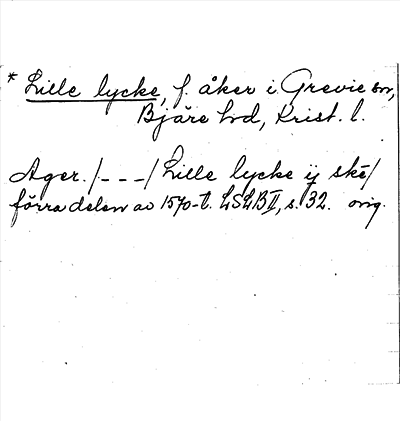 * Lille lycke, f. åker i Grevie sn,
Bjäre hd, Krist. l.
Ager. /---/ Lille lycke ij skē/
förra delen av 1570-t. LSLB II, s. 32. orig.